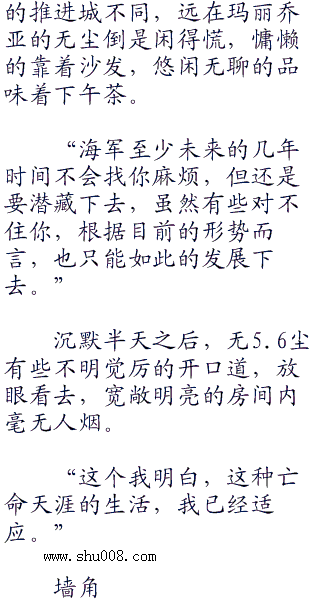 的推进城不同，远在玛丽乔
亚的无尘倒是闲得慌，慵懒
的靠着沙发，悠闲无聊的品
味着下午茶。
“海军至少未来的几年
时间不会找你麻烦，但还是
要潜藏下去，虽然有些对不
住你，根据目前的形势而
言，也只能如此的发展下
去。”
沉默半天之后，无5.6尘
有些不明觉厉的开口道，放
眼看去，宽敞明亮的房间内
毫无人烟。
“这个我明白，这种亡
命天涯的生活，我已经适
应。”
www.shu008.com
墙角